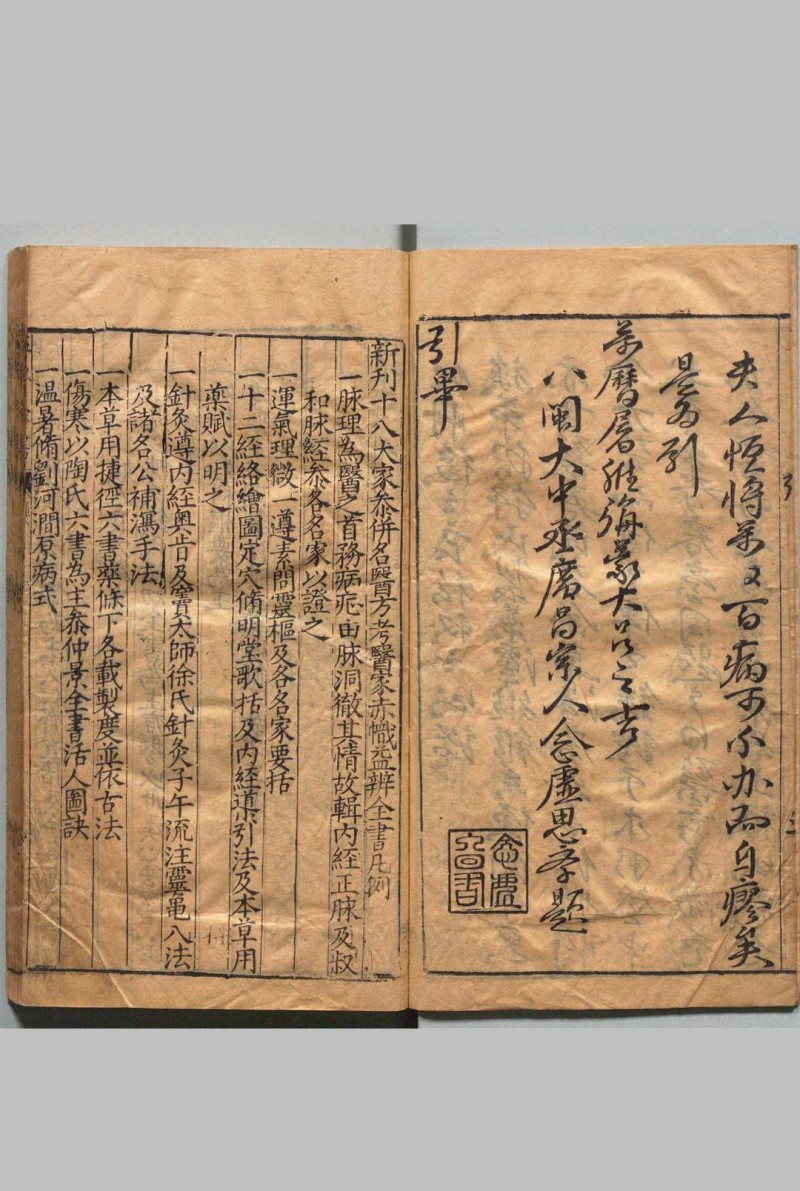 夫人恒將萬又百病可不办而自瘳矣
是為引
萬曆屠維 大呂之吉
八閩大中丞廣昌 人念虛思孝題
引畢
新刊十八大家參併名醫方考醫家赤幟益辨全書凡例
一脉理為醫之首務病症由脉洞徹其情故輯內經正脉及叔
和脉經參各名家以證之
一運氣理微一遵素問靈樞及各名家要括
一十二經絡繪圖定穴俻明堂歌括及內經導引法及本草用
藥賦以明之
一針灸遵內經奥旨及竇太師徐氏針灸子午流注靈龜八法
及諸名公補瀉手法
一本草用捷徑六書藥條下各載製度並依古法
一傷寒以陶氏六書為主參仲景全書活人圖訣
一温暑俻劉河澗原病式